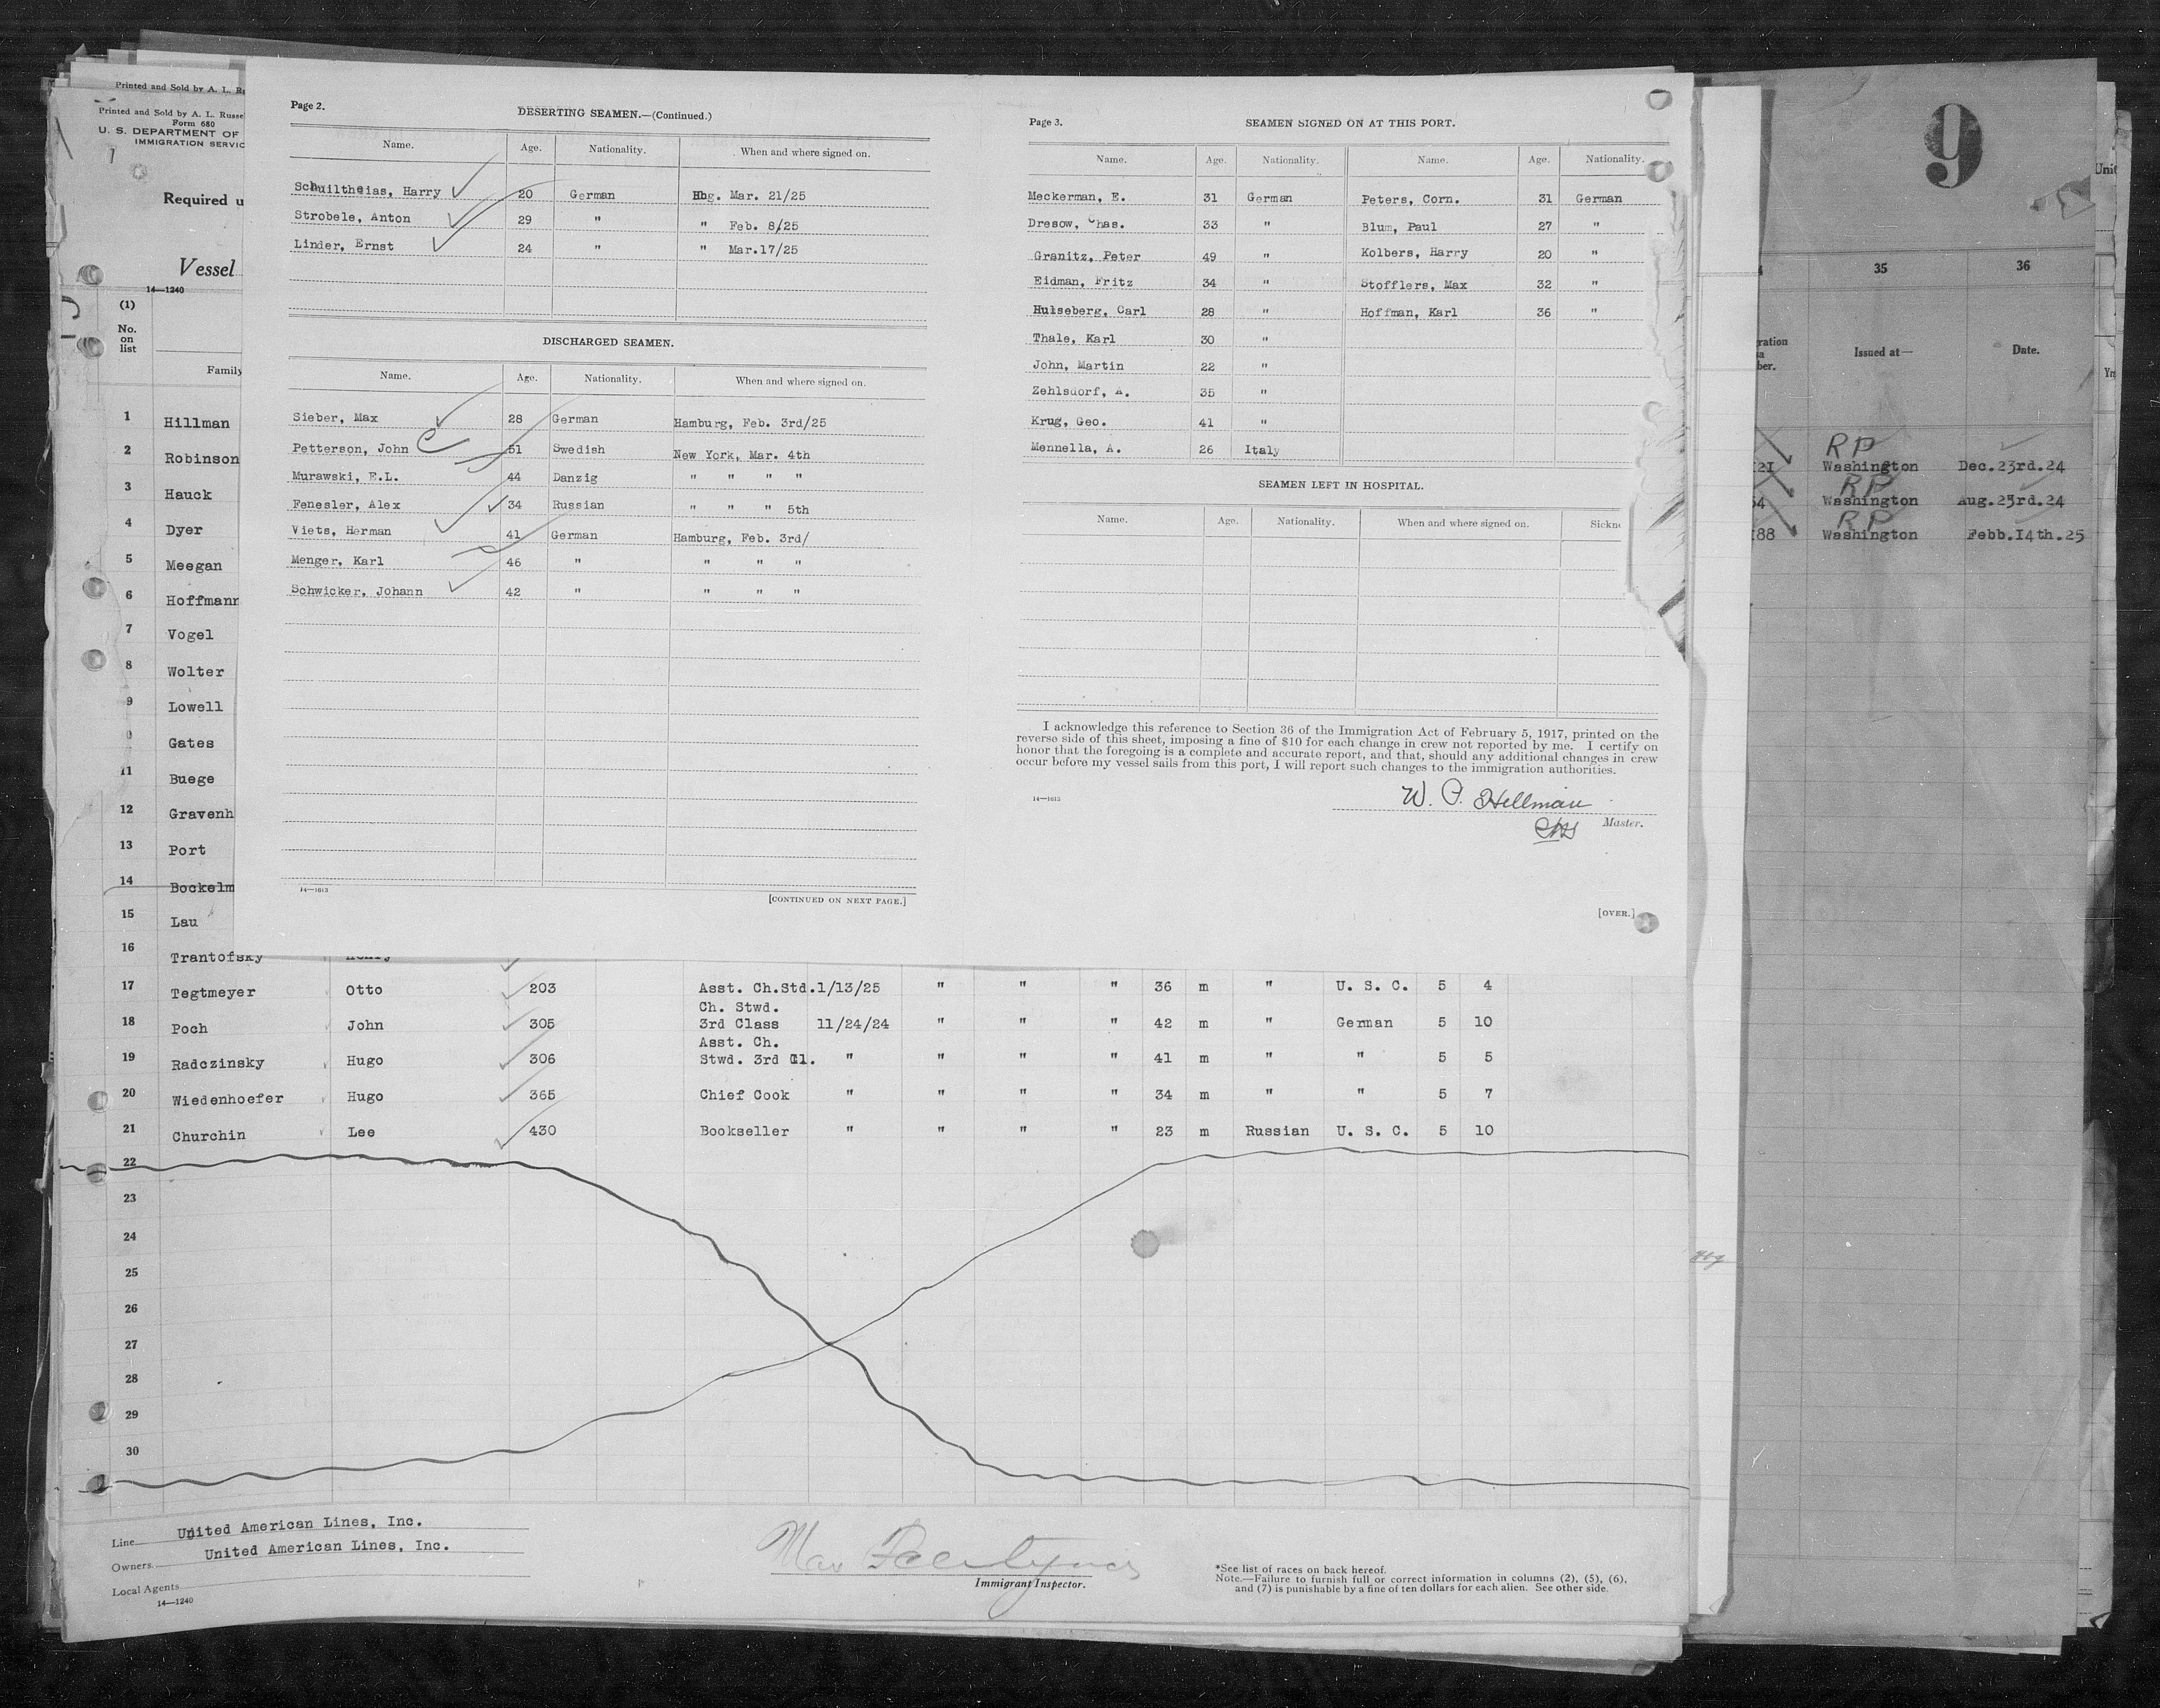 Printed and Sold by A. L.
Printed and Sold by A. L. Russe
Form 680
U. S. DEPARTMENT OF
IMMIGRATION SERVIC
Required u
Vessel
14—1240
(1)
No.
on
list
Family
1 Hillman
2 Robinson
3 Hauck
4 Dyer
5 Meegan
6 Hoffmann
7 Vogel
8 Wolter
9 Lowell
Gates
11 Buege
12 Gravenh
13 Port
14 Bockelm
15 Lau
16 Trantofsky Henry
Page 2.
DESERTING SEAMEN.—(Continued.)
Name. Age. Nationality. When and where signed on.
Schuiltheias, Harry 20 German Hbg. Mar. 21/25
Strobele, Anton 29 " " Feb. 8/25
Linder, Ernst 24 " " Mar.17/25
DISCHARGED SEAMEN.
Name. Age. Nationality. When and where signed on.
Sieber, Max 28 German Hamburg, Feb. 3rd/25
Petterson, John 51 Swedish New York, Mar. 4th
Murawski, E.L. 44 Danzig " " " "
Fenesler, Alex 34 Russian " " " 5th
Viets, Herman 41 German Hamburg, Feb. 3rd/
Menger, Karl 46 " " " "
Schwicker, Johann 42 " " " "
14—1613
[CONTINUED ON NEXT PAGE.]
Page 3.
SEAMEN SIGNED ON AT THIS PORT.
Name. Age. Nationality. Name. Age. Nationality.
Meckerman, E. 31 German Peters, Corn. 31 German
Dresow, Chas. 33 " Blum, Paul 27 "
Granitz, Peter 49 " Kolbers, Harry 20 "
Eidman, Fritz 34 " Stofflers, Max 32 "
Hulseberg, Carl 28 " Hoffman, Karl 36 "
Thale, Karl 30 "
John, Martin 22 "
Zehlsdorf, A. 35 "
Krug, Geo. 41 "
Mennella, A. 26 Italy
SEAMEN LEFT IN HOSPITAL.
Name. Age. Nationality. When and where signed on. Sickn
I acknowledge this reference to Section 36 of the Immigration Act of February 5, 1917, printed on the
reverse side of this sheet, imposing a fine of $10 for each change in crew not reported by me. I certify on
honor that the foregoing is a complete and accurate report, and that, should any additional changes in crew
occur before my vessel sails from this port, I will report such changes to the immigration authorities.
14—1613
W. P. Hillman
Master.
[OVER.]
9
35 36
ration
ber.
Issued at— Date.
Unit
Yrs
RP
121 Washington Dec.23rd.24
RP
54 Washington Aug.23rd.24
RP
188 Washington Febb.14th.25
17 Tegtmeyer Otto 203 Asst. Ch.Std.1/13/25 " " " 36 m " U. S. C. 5 4
Ch. Stwd.
18 Poch John 305 3rd Class 11/24/24 " " " 42 m " German 5 10
Asst. Ch.
19 Radczinsky Hugo 306 Stwd. 3rd Cl. " " " " 41 m " " 5 5
20 Wiedenhoefer Hugo 365 Chief Cook " " " " 34 m " " 5 7
21 Churchin Lee 430 Bookseller " " " " 23 m Russian U. S. C. 5 10
22
23
24
25
26
27
28
29
30
Hbg
Line United American Lines, Inc.
Owners United American Lines, Inc.
Local Agents
14—1240
Immigrant Inspector.
*See list of races on back hereof.
Note.—Failure to furnish full or correct information in columns (2), (5), (6),
and (7) is punishable by a fine of ten dollars for each alien. See other side.